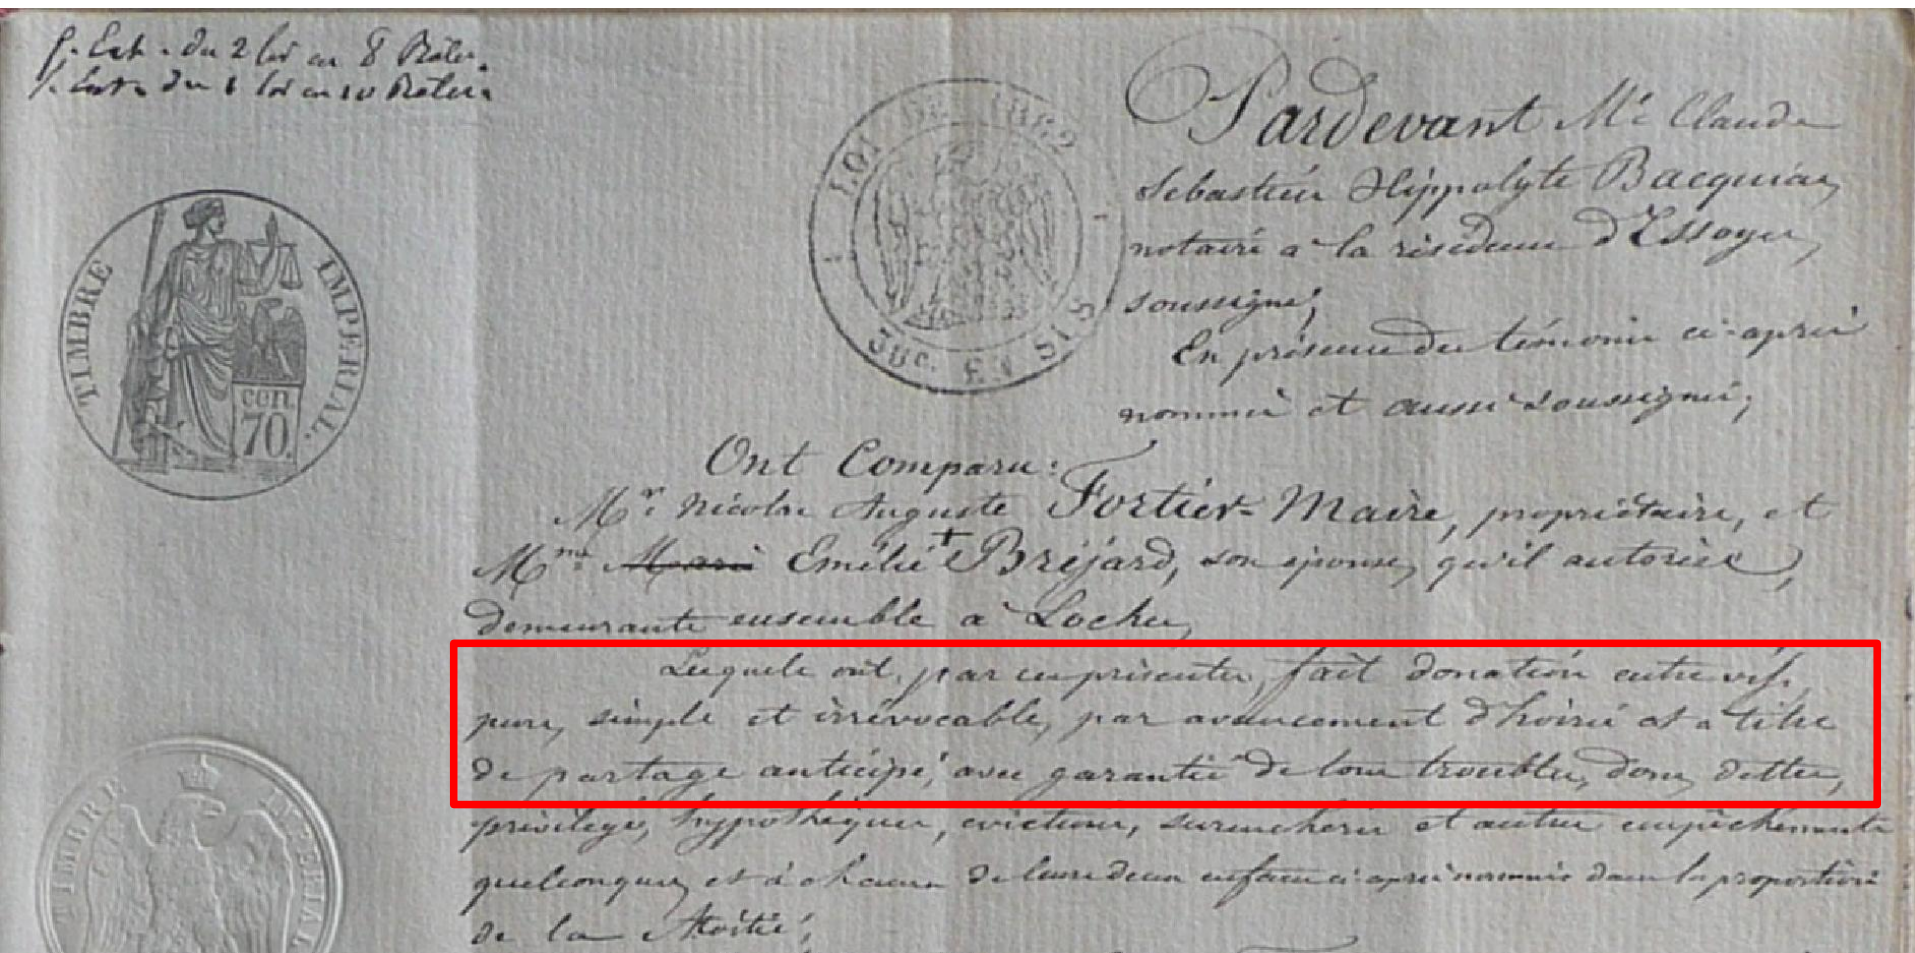 f. Ext. du 2 lot au 8 Rôles.
f. Ext. du 1 lot au 10 Rôles.
Pardevant Me Claude
Sebastien Hippolyte Bacquias,
notaire à la résidence d'Essoyes,
soussigné;
En présence des témoins ci-après
nommés et aussi soussignés;
LOI DE 1862
2/10 EN SUS
TIMBRE IMPERIAL.
cen.
70.
Ont Comparu:
Mr Nicolas Auguste Fortier-Maire, propriétaire, et
Mme Marie Emélie + Bréjard, son épouse, qu'il autorise,
demeurants ensemble à Loches,
Lesquels ont, par ces présentes, fait donation entre vifs,
pure, simple et irrévocable, par avancement d'hoirie et à titre
de partage anticipé, avec garantie de tous troubles, dons, dettes,
privilèges, hypothèques, évictions, surenchères et autres empêchements
quelconques, et à chacun de leurs deux enfants ci après nommés dans la proportion
de la Moitié;
TIMBRE IMPERIAL